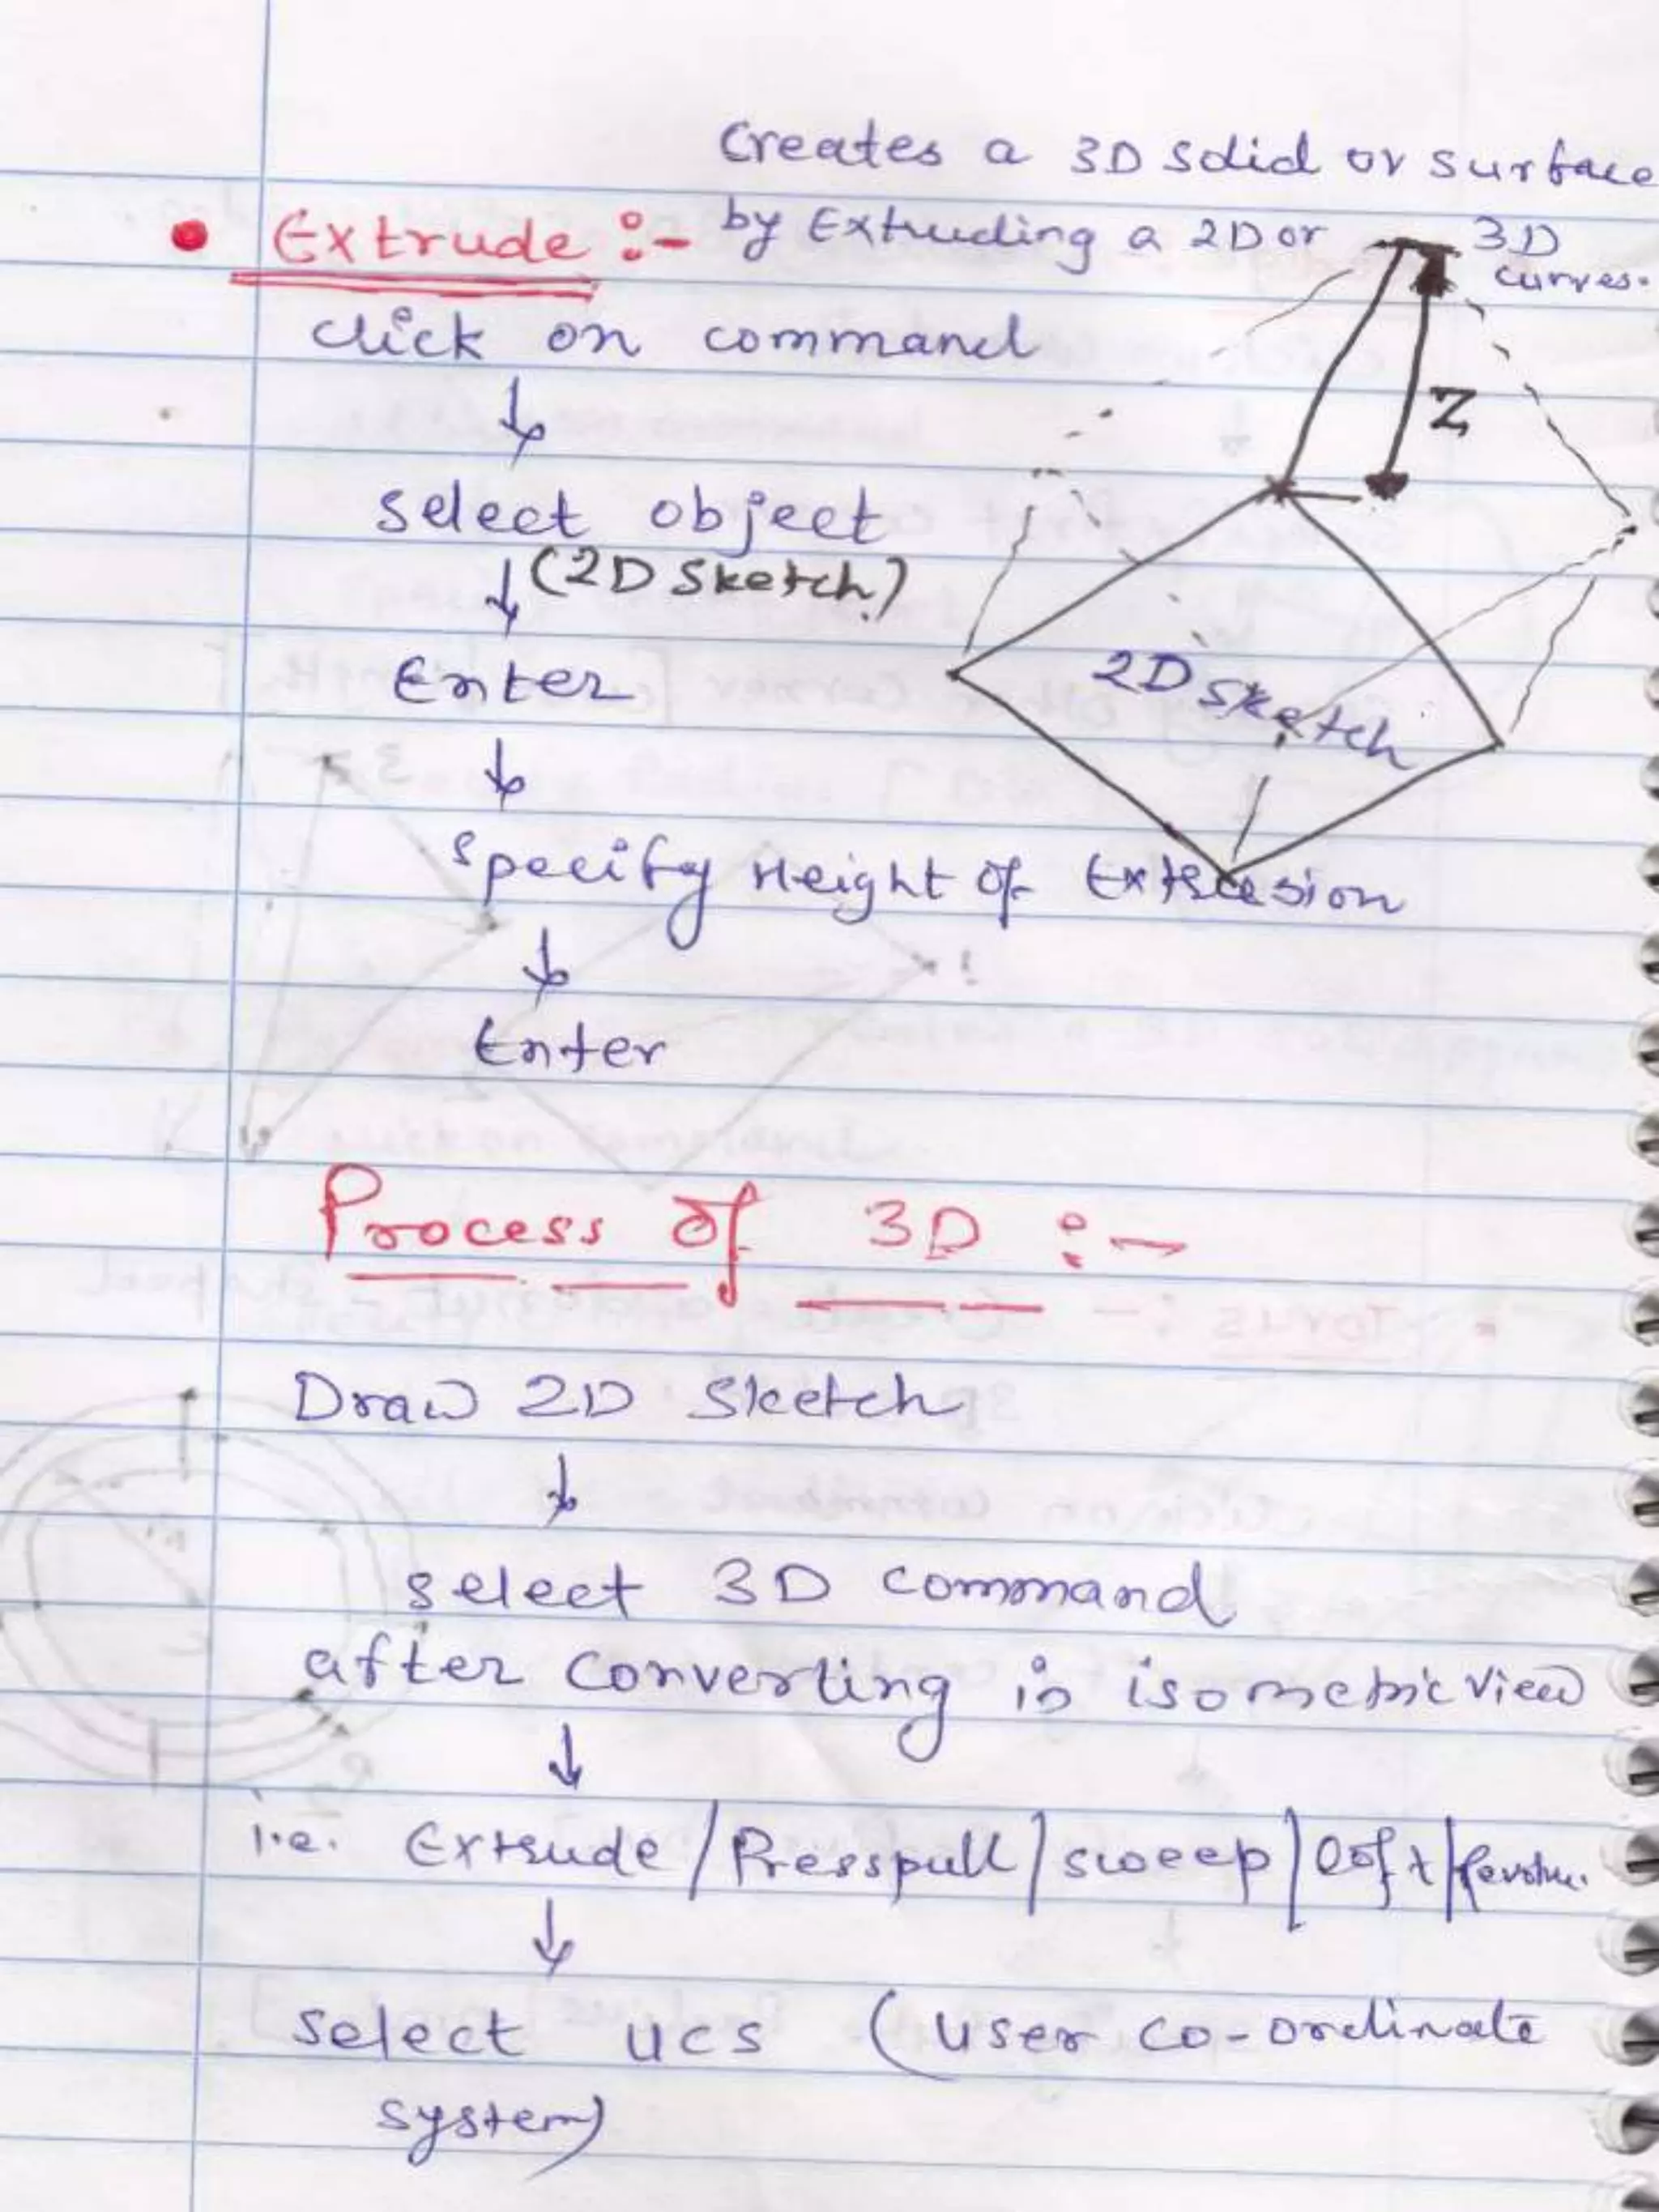 Creates a 3D Solid or surface
• Extrude :- by Extruding a 2D or 3D
curves.
click on command
↓
Z
select object
↓ (2D Sketch)
Enter
2D Sketch
↓
specify Height of Extrusion
↓
Enter
Process of 3D :-
Draw 2D Sketch
↓
select 3D command
after converting in isometric view
↓
i.e. Extrude / Presspull / sweep / loft / Revolve.
↓
select UCS (User co-ordinate
system)